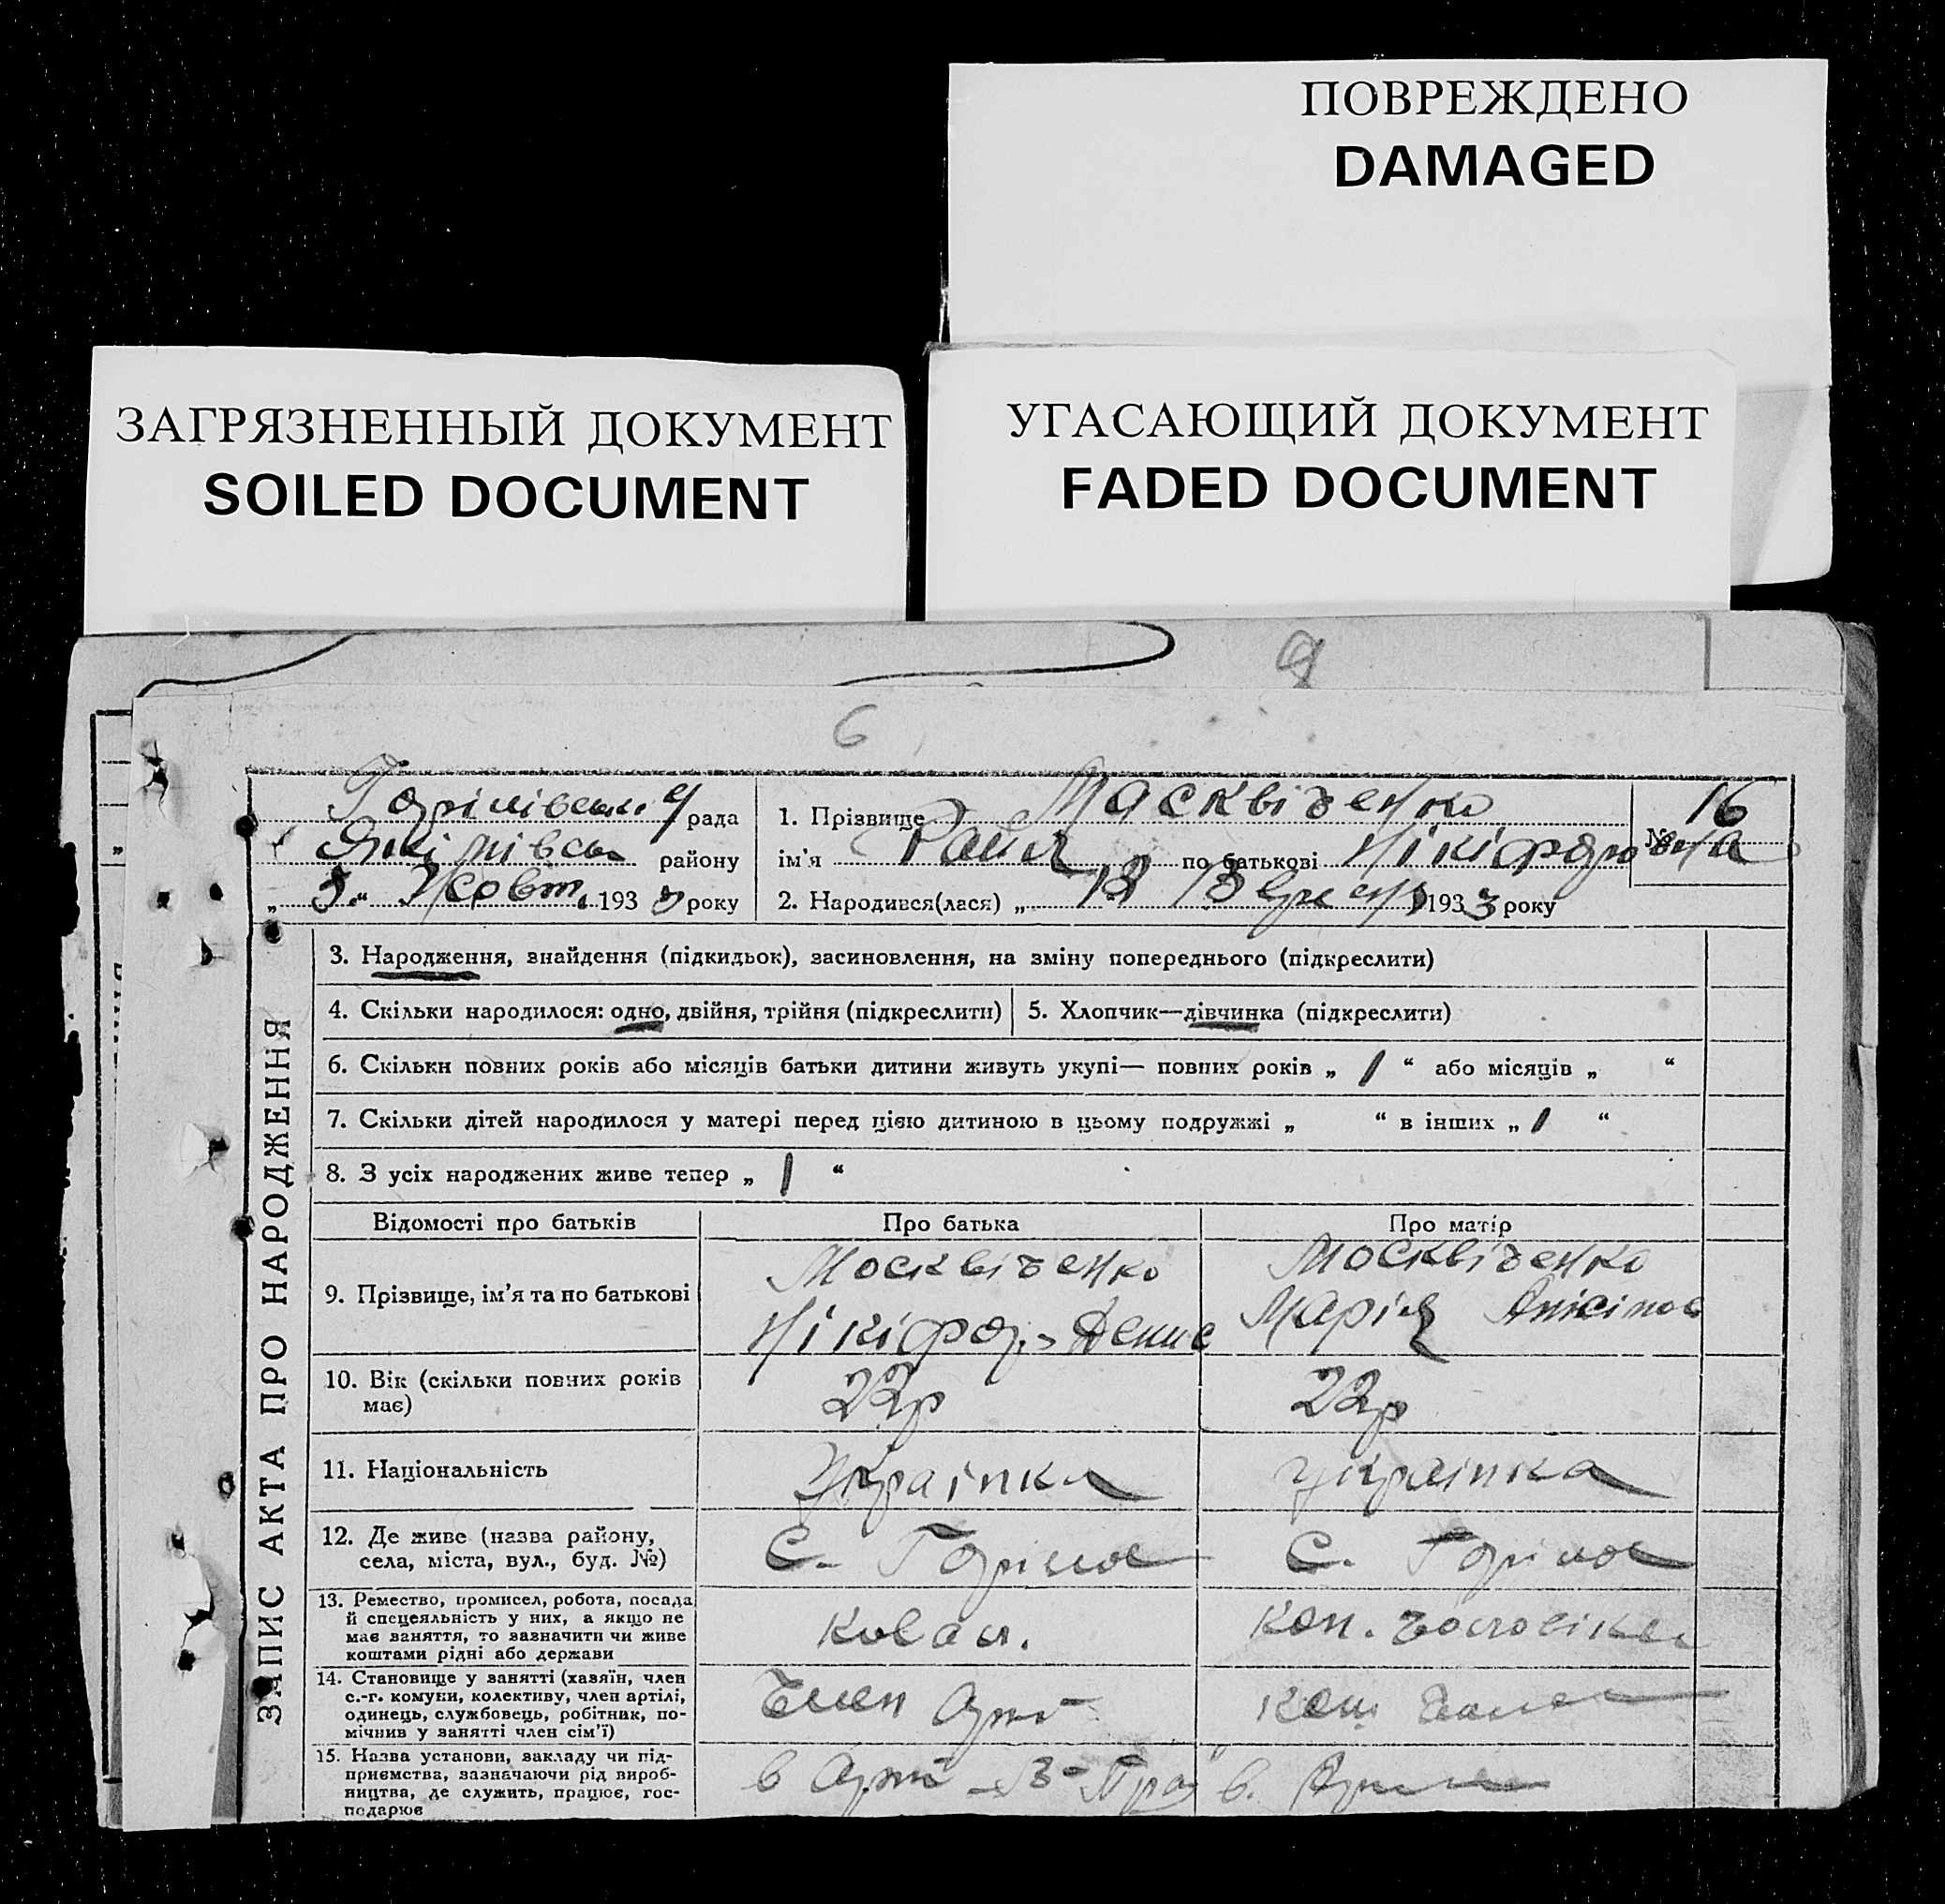 ПОВРЕЖДЕНО
DAMAGED
ЗАГРЯЗНЕННЫЙ ДОКУМЕНТ
SOILED DOCUMENT
УГАСАЮЩИЙ ДОКУМЕНТ
FADED DOCUMENT
9
6
рада
району
„ 5 “ Жовт. 1933 року
1. Прізвище Москвіченко
ім'я Раїя по батькові Нікіфоровна
№ 16
2. Народився(лася) „ 12 Вересня 1933 року
ЗАПИС АКТА ПРО НАРОДЖЕННЯ
3. Народження, знайдення (підкидьок), засиновлення, на зміну попереднього (підкреслити)
4. Скільки народилося: одно, двійня, трійня (підкреслити)
5. Хлопчик—дівчинка (підкреслити)
6. Скільки повних років або місяців батьки дитини живуть укупі— повних років „ 1 “ або місяців „ “
7. Скільки дітей народилося у матері перед цією дитиною в цьому подружжі „ “ в інших „ 1 “
8. З усіх народжених живе тепер „ 1 “
Відомості про батьків
Про батька
Про матір
9. Прізвище, ім'я та по батькові
Москвіченко
Нікіфор. Денис
Москвіченко
Марія Анісімов
10. Вік (скільки повних років
має)
22р
22р
11. Національність
Українка
українка
12. Де живе (назва району,
села, міста, вул., буд. №)
С. Горілое
С. Горілое
13. Ремество, промисел, робота, посада
й спецеяльність у них, а якщо не
має заняття, то зазначити чи живе
коштами рідні або держави
Ковал.
кош. чоловіка
14. Становище у занятті (хазяїн, член
с.-г. комуни, колективу, член артілі,
одинець, службовець, робітник, по-
мічнив у занятті член сім'ї)
Член Арт
кош
15. Назва установи, закладу чи під-
приємства, зазначаючи рід вироб-
ництва, де служить, працює, гос-
подарює
в Арт
в.